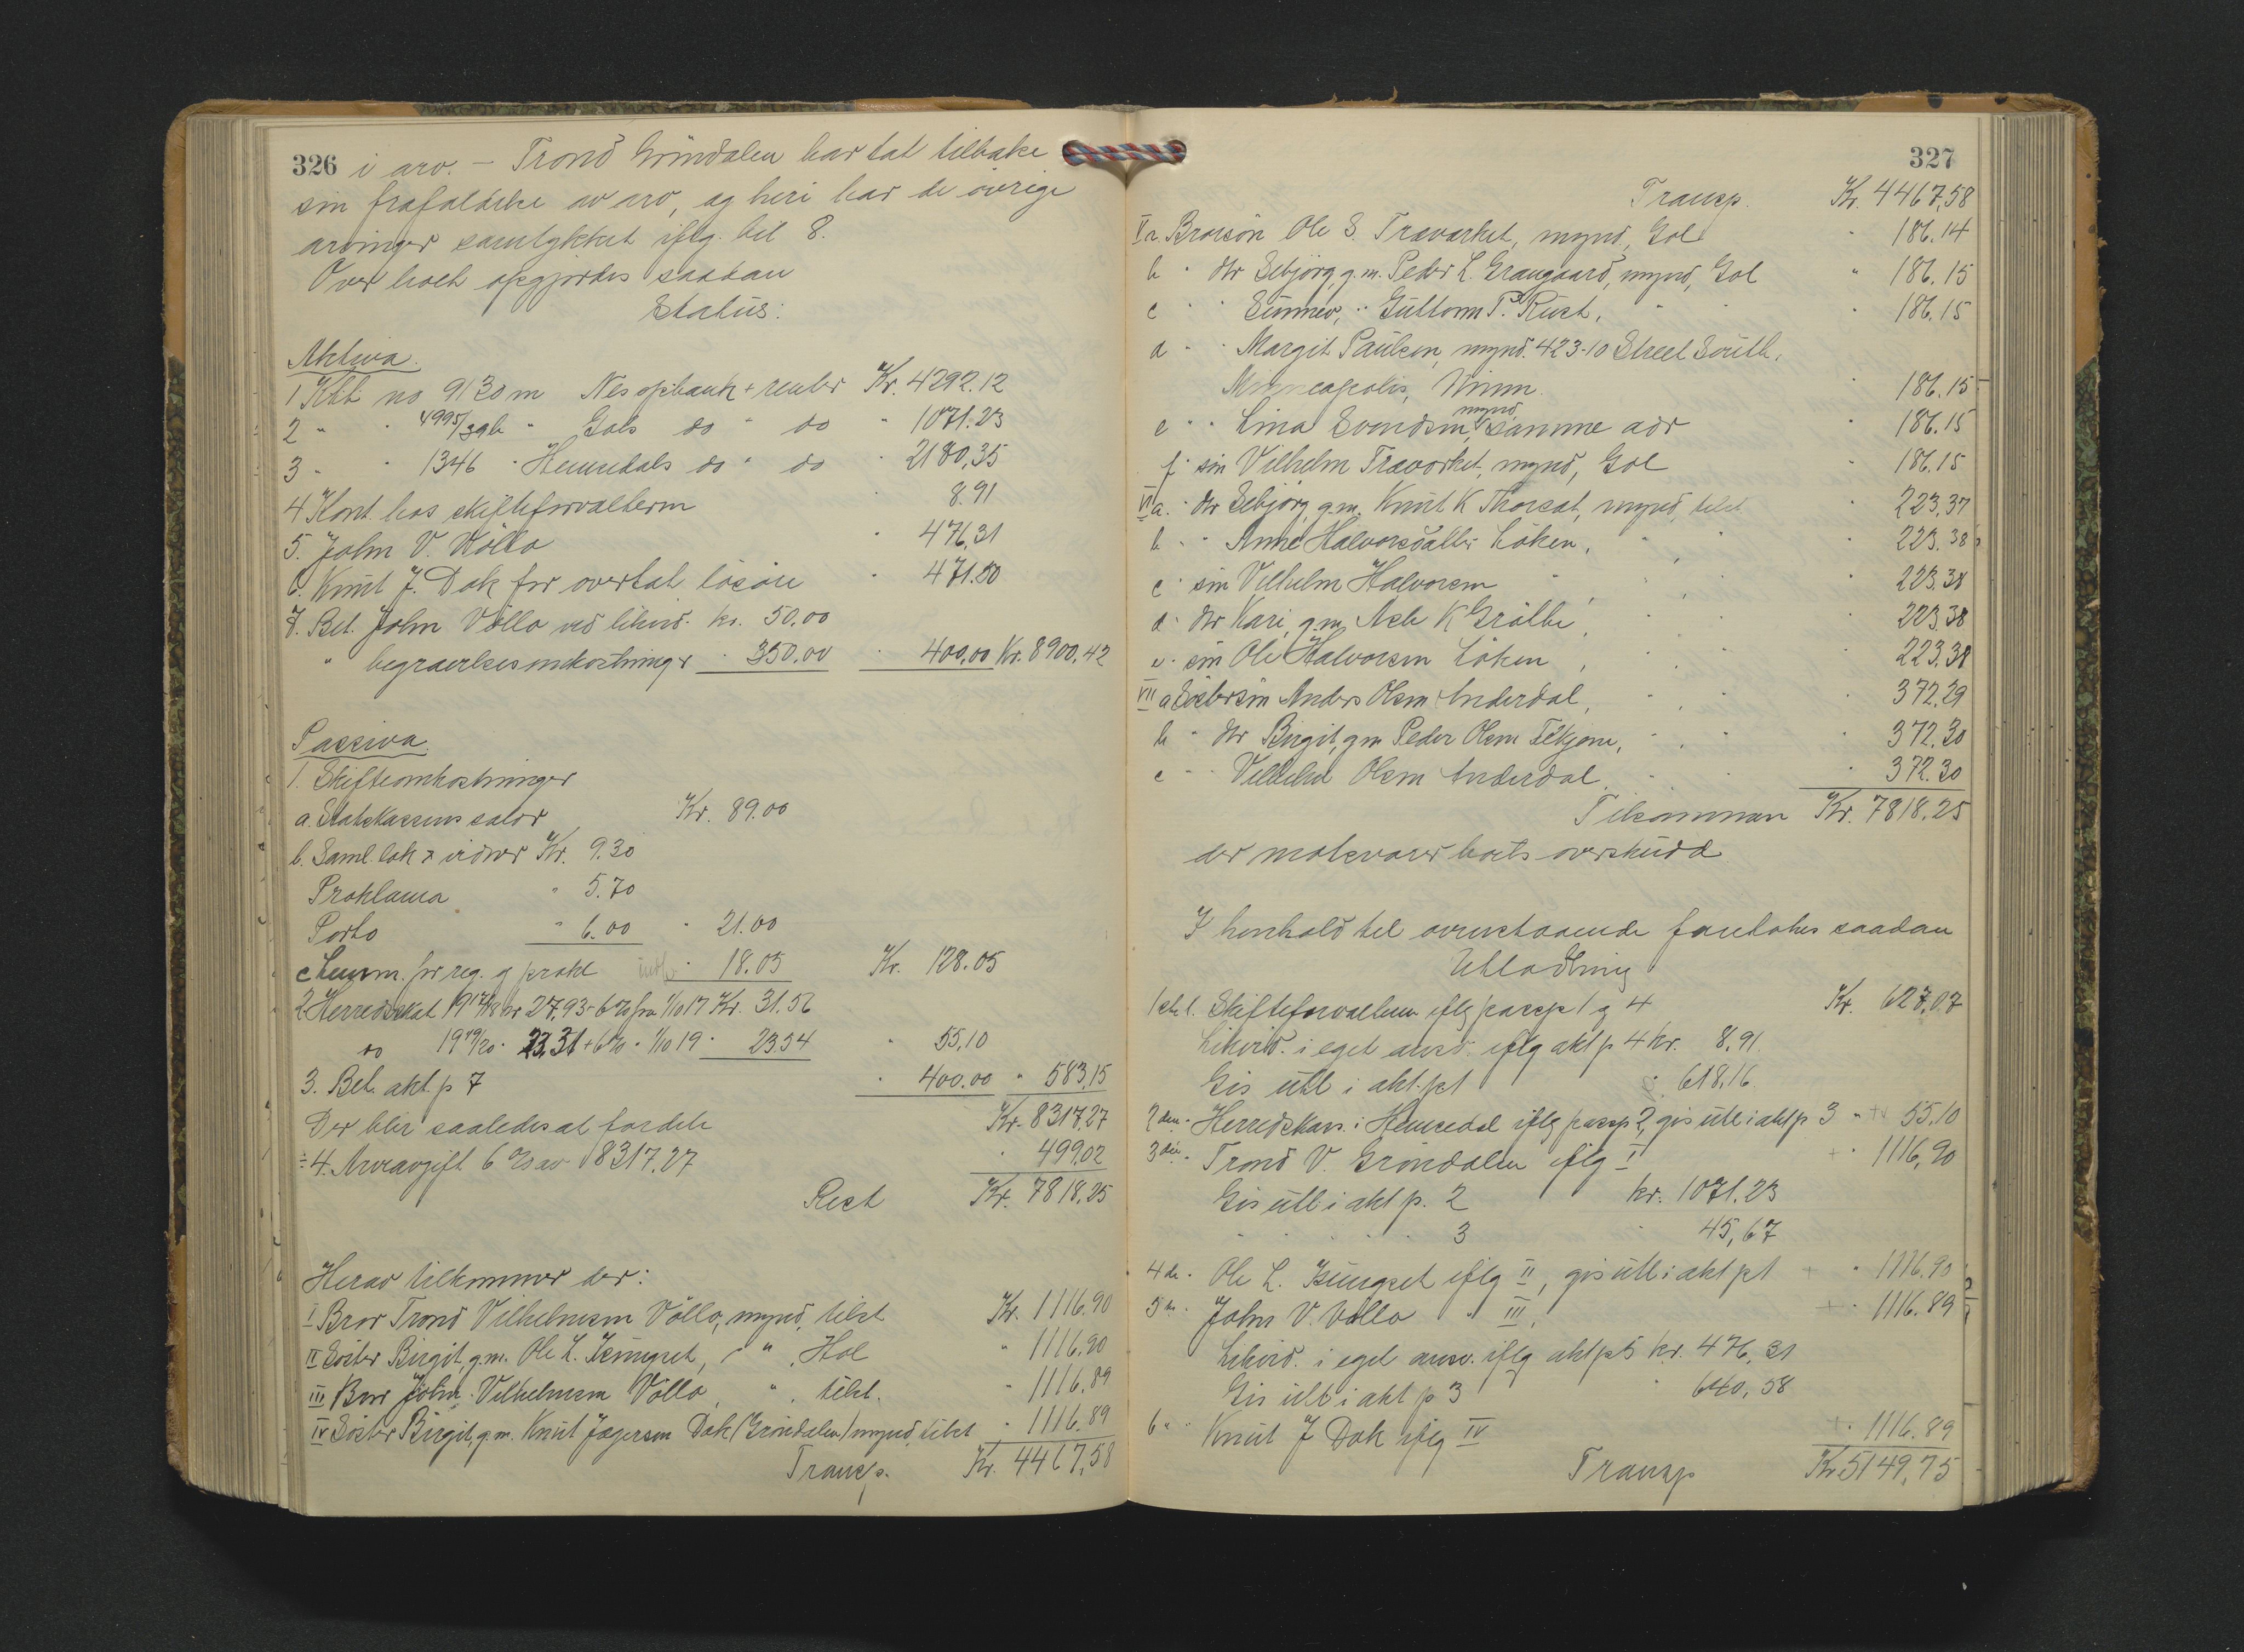 326 i arv. – Trond Gröndalen har tat tilbake
sin frafaldelse av arv, og heri har de övrige
arvinger samtykket iflg. bil 8.
Over boet opgjordes saadan
Status:
Aktiva.
1 Kbk no 9130 m Nes spbank + renter Kr. 4292.12
2 " " 4995/39b " Gols do " do " 1071.23
3 " " 1346 " Hemsedals do " do " 2180,35
4 Kont. hos skifteforvalteren " 8.91
5. John V. Völlo " 476,31
6. Knut J. Dok for overtat lösöre " 471.50
7. Bet. John Völlo ved likvid. kr. 50,00
" begravelsesomkostninger " 350.00 " 400,00 Kr. 8900,42
Passiva.
1. Skifteomkostninger
a. Statskassens salær Kr. 89.00
b. Saml. lok & vidner Kr. 9.30
Proklama " 5.70
Porto " 6.00 " 21.00
c Stemm. for reg. og prokl " 18.05 Kr. 128.05
2 Herredskat 1917/18 kr 27,93 + 6% fra 1/10 17 Kr. 31.56
do 1919/20 " 23,31 + 6% " 1/10 19 " 23.54 " 55,10
3. Bet. akt. p 7 " 400.00 " 583,15
Der blir saaledes at fordele Kr. 8317,27
÷ 4. Arveavgift 6 % av 8317,27 " 499,02
Rest Kr. 7818,25
Herav tilkommer der:
I Bror Trond Vilhelmsen Völlo, mynd, tilst Kr. 1116.90
II Söster Birgit, g.m. Ole L. Isungset, " " , Hol " 1116,90
III Bror John Vilhelmsen Völlo, " , tilst. " 1116,89
IV Söster Birgit, g.m. Knut Jegersen Dok (Gröndalen) mynd, tilst " 1116.89
Transp. Kr. 4467,58
327
Transp. Kr. 4467,58
V a. Brorsön Ole S. Travarket, mynd, Gol " 186.14
b " dtr Sebjörg, g.m. Peder L. Grangaard, mynd, Gol " 186.15
c " " Sunnev, " Guttorm P. Rust, " " " 186.15
d " " Margit Paulson, mynd. 423-10 Street South,
Minneapolis, Minn. " 186.15
e " " Lina Svendsen, mynd, samme adr " 186.15
f " sön Vilhelm Travarket, mynd, Gol " 186.15
VI a. " dtr Sebjörg, g.m. Knut K Thorset, mynd, tilst " 223,37
b " " Anne Halvorsdatter Löken, " " " 223.38
c " sön Vilhelm Halvorsen " , " " 223.38
d " dtr Kari, g.m. Asle K Gröthe, " " " 223.38
e " sön Ole Halvorsen Löken , " " " 223.38
VII a Söstersön Anders Olsen Anderdal, " " " 372.29
b " dtr Birgit, gm Peder Olsen Eikjorn, " " " 372.30
c " " Vilhelm Olsen Anderdal " " " 372.30
Tilsammen Kr. 7818.25
der motsvarer boets overskudd
I henhold til ovenstaaende foretokes saadan
Utlodning
1ste 1. Skifteforvalteren iflg passp 1 og 4 Kr. 627,07
Likvid. i eget ansv. iflg akt p 4 kr. 8,91
Gis utl i akt. p 1 " 618,16
2den " Herredskas. i Hemsedal iflg passp 2, gis utl i akt p 3 " 55,10
3die " Trond V. Gröndalen iflg I " 1116,90
Gis utl i akt p. 2 kr. 1071.23
" " " " " 3 " 45,67
4de " Ole L. Isungset iflg II, gis utl i akt p 1 " 1116,90
5te " John V. Völlo " III, " 1116.89
Likvid. i eget ansv. iflg akt p 5 kr. 476,31
Gis utl i akt p 3 " 640,58
6te " Knut J Dok iflg IV " 1116.89
Transp Kr 5149,75